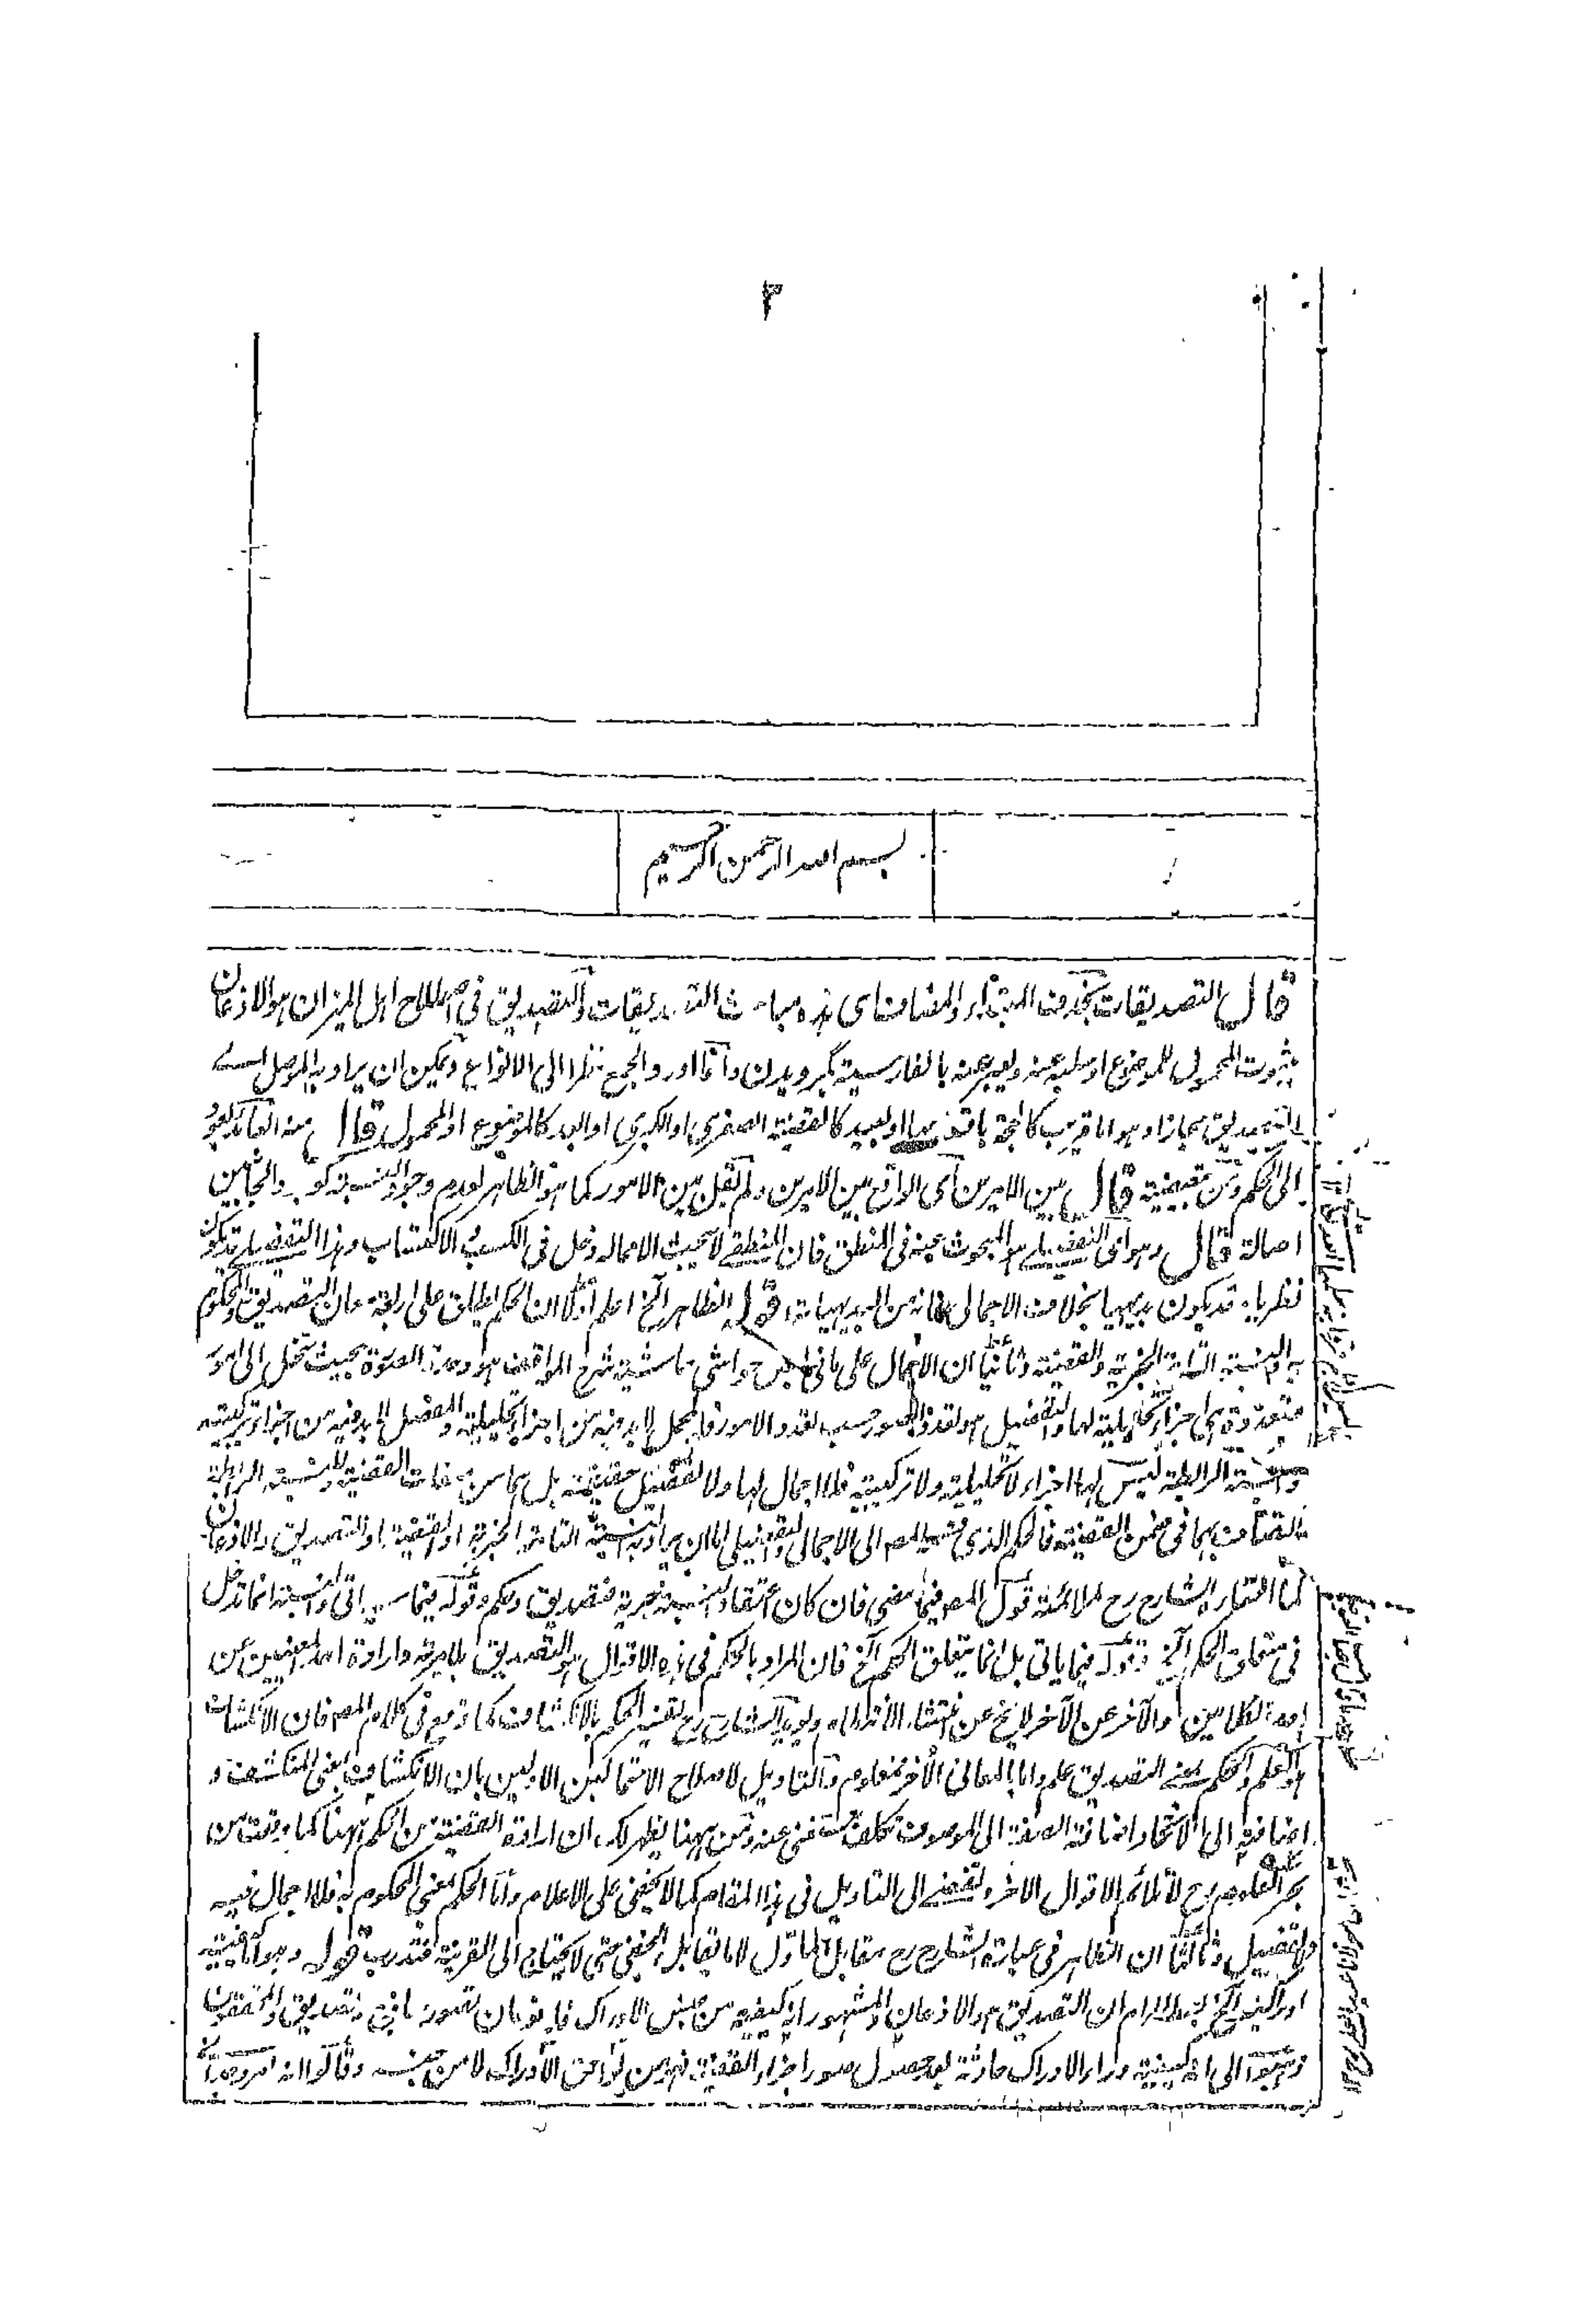 ٣
بسم الله الرحمن الرحيم
قال التصديقات بحذف المبتدأ والمضاف اى هذه مباحث التصديقات والتصديق في اصطلاح اهل الميزان هو الاذعان
بثبوت المحمول للموضوع او سلبه عنه ويعبر عنه بالفارسية بگرويدن وانما اورد الجمع نظرا الى الانواع ويمكن ان يراد به الموصل الى
التصديق مجازا وهو اما قريب كالحجة باقسامها او بعيد كالقضية الصغرى او الكبرى او ابعد كالموضوع او المحمول قال منه العائد يعود
الى الحكم ومن تبعيضية قال بين الامرين اى الواقع بين الامرين ولم يقل بين الامور كما هو الظاهر لعدم وجود النسبة والجانبين
اصالة قال وهو اى التفصيلى هو المبحوث عنه في المنطق فان المنطقى لا يبحث الا عما له دخل في الكسب والاكتساب وهذا التفصيلى قد يكون
نظريا وقد يكون بديهيا بخلاف الاجمالى فانه من البديهيات قوله الظاهر آلخ اعلم اولا ان الحكم يطلق على اربعة معان التصديق والمحكوم
به والنسبة التامة الخبرية والقضية وثانيا ان الاجمال على ما في بعض حواشى حاشية شرح المواقف هو وحدة الصورة بحيث تنحل الى امور
متعددة هى اجزاء تحليلية لها والتفصيل هو تعدد الصور حسب تعدد الامور فالمجمل لا بد فيه من اجزاء تحليلية والمفصل لا بد فيه من اجزاء تركيبية
والنسبة الرابطة ليس لها اجزاء لا تحليلية ولا تركيبية فلا اجمال لها ولا تفصيل حقيقة بل هما من صفات القضية والنسبة الرابطة
تتصف بهما في ضمن القضية فالحكم الذي قسمه المصـ الى الاجمالى والتفصيلى اما ان يراد به النسبة التامة الخبرية او القضية او التصديق والاذعان
كما اختار الشارح رح لملائمة قول المصـ فيما مضى فان كان اعتقادا لنسبة خبرية فتصديق وحكم وقوله فيما سياتى والنسبة انما تدخل
في متعلق الحكم آلخ وقوله فيما ياتى بل انما يتعلق الحكم آلخ فان المراد بالحكم في هذه الاقوال هو التصديق بلا مرية وارادة احد المعنيين من
احد الكلامين والآخر عن الآخر لا يخ عن انتشار ويؤيد الشارح رح تفسير الحكم بالانكشاف كما وقع في كلام المصـ فان الانكشاف
هو العلم والحكم بمعنى التصديق علم واما بالمعانى الأخر فمعلوم والتاويل لاصلاح الاحتمالين الاولين بان الانكشاف بمعنى المنكشف و
اضافته الى الاتحاد اضافة الصفة الى الموصوف تكلف مستغنى عنه ومن ههنا يظهر لك ان ارادة القضية من الحكم ههنا كما وقعت من
بحر العلوم رح لا تلائم الاقوال الاخر وتفضى الى التاويل في هذا المقام كما لا يخفى على الاعلام واما الحكم بمعنى المحكوم به فلا اجمال فيه
ولا تفصيل وثالثا ان الظاهر في عبارة الشارح رح مقابل المأوّل لا ما يقابل الخفى حتى لا يحتاج الى القرينة فتدبر قوله وهو كيفية
ادراكية آلخ ان التصديق هو الاذعان والمشهور انه كيفية من جنس الادراك فانه نوعان تصور ساذج وتصديق والمحققون
ذهبوا الى انه كيفية وراء الادراك حادثة بعد حصول صور اجزاء القضية فهو من لواحق الادراك لا من جنسه وقالوا انه امر وجدانى